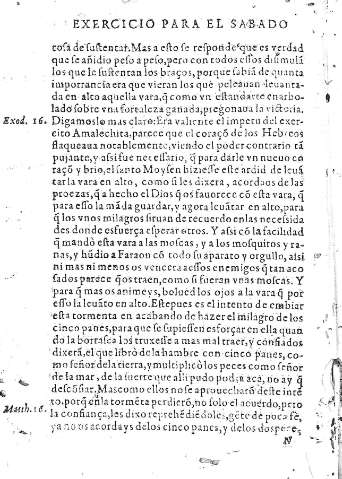 EXERCICIO PARA EL SABADO
cosa de sustentar. Mas a esto se responde que es verdad
que se añidio peso a peso, pero con todo essos dissimulã
los que le sustentan los braços, porque sabiã de quanta
importancia era que vieran los que peleauan leuanta-
da en alto aquella vara, q̃ como vn estandarte enarbo-
lado sobre vna fortaleza ganada, pregonaua la victoria.
Exod. 16. Digamoslo mas claro: Era valiente el impetu del exer-
cito Amalechita, parece que el coraçõ de los Hebreos
flaqueaua notablemente, viendo el poder contrario tã
pujante, y assi fue necessario, q̃ para darle vn nueuo co
raçõ y brio, el santo Moysen hiziesse este ardid de leuã
tar la vara en alto, como si les dixera, acordaos de las
proezas, q̃ a hecho el Dios q̃ os fauorece cõ esta vara, q̃
para esso la mãda guardar, y agora leuãtar en alto, para
q̃ los vnos milagros siruan de recuerdo en las necessida
des donde espera esperar otros. Y assi cõ la facilidad
q̃ mandò esta vara a las moscas, y a los mosquitos y ra-
nas, y hũdio a Faraon cõ todo su aparato y orgullo, assi
ni mas ni menos os vencera a essos enemigos q̃ tan aco
sados parece q̃ os traen, como si fueran vnas moscas. Y
para q̃ mas os animeys, bolued los ojos a la vara q̃ por
esso la leuãto en alto. Este pues es el intento de embiar
esta tormenta en acabando de hazer el milagro de los
cinco panes, para que se supiessen esforçar en ella quan
do la borrasca los truxesse a mas mal traer, y cõfiados
dixerã, el que librò de la hambre con cinco panes, co-
mo señor de la tierra, y multiplicò los peces como señor
de la mar, de la suerte que alli pudo podra acà, no ay q̃
descõfiar. Mas como ellos no se aprouecharõ deste intẽ
Matth. 16. to, porq̃ en la tormẽta perdierõ, no solo el acuerdo, pero
la confiança, les dixo reprehẽdiẽdoles, gẽte de poca fe,
ya no os acordays de los cinco panes, y de los dos pece,
N